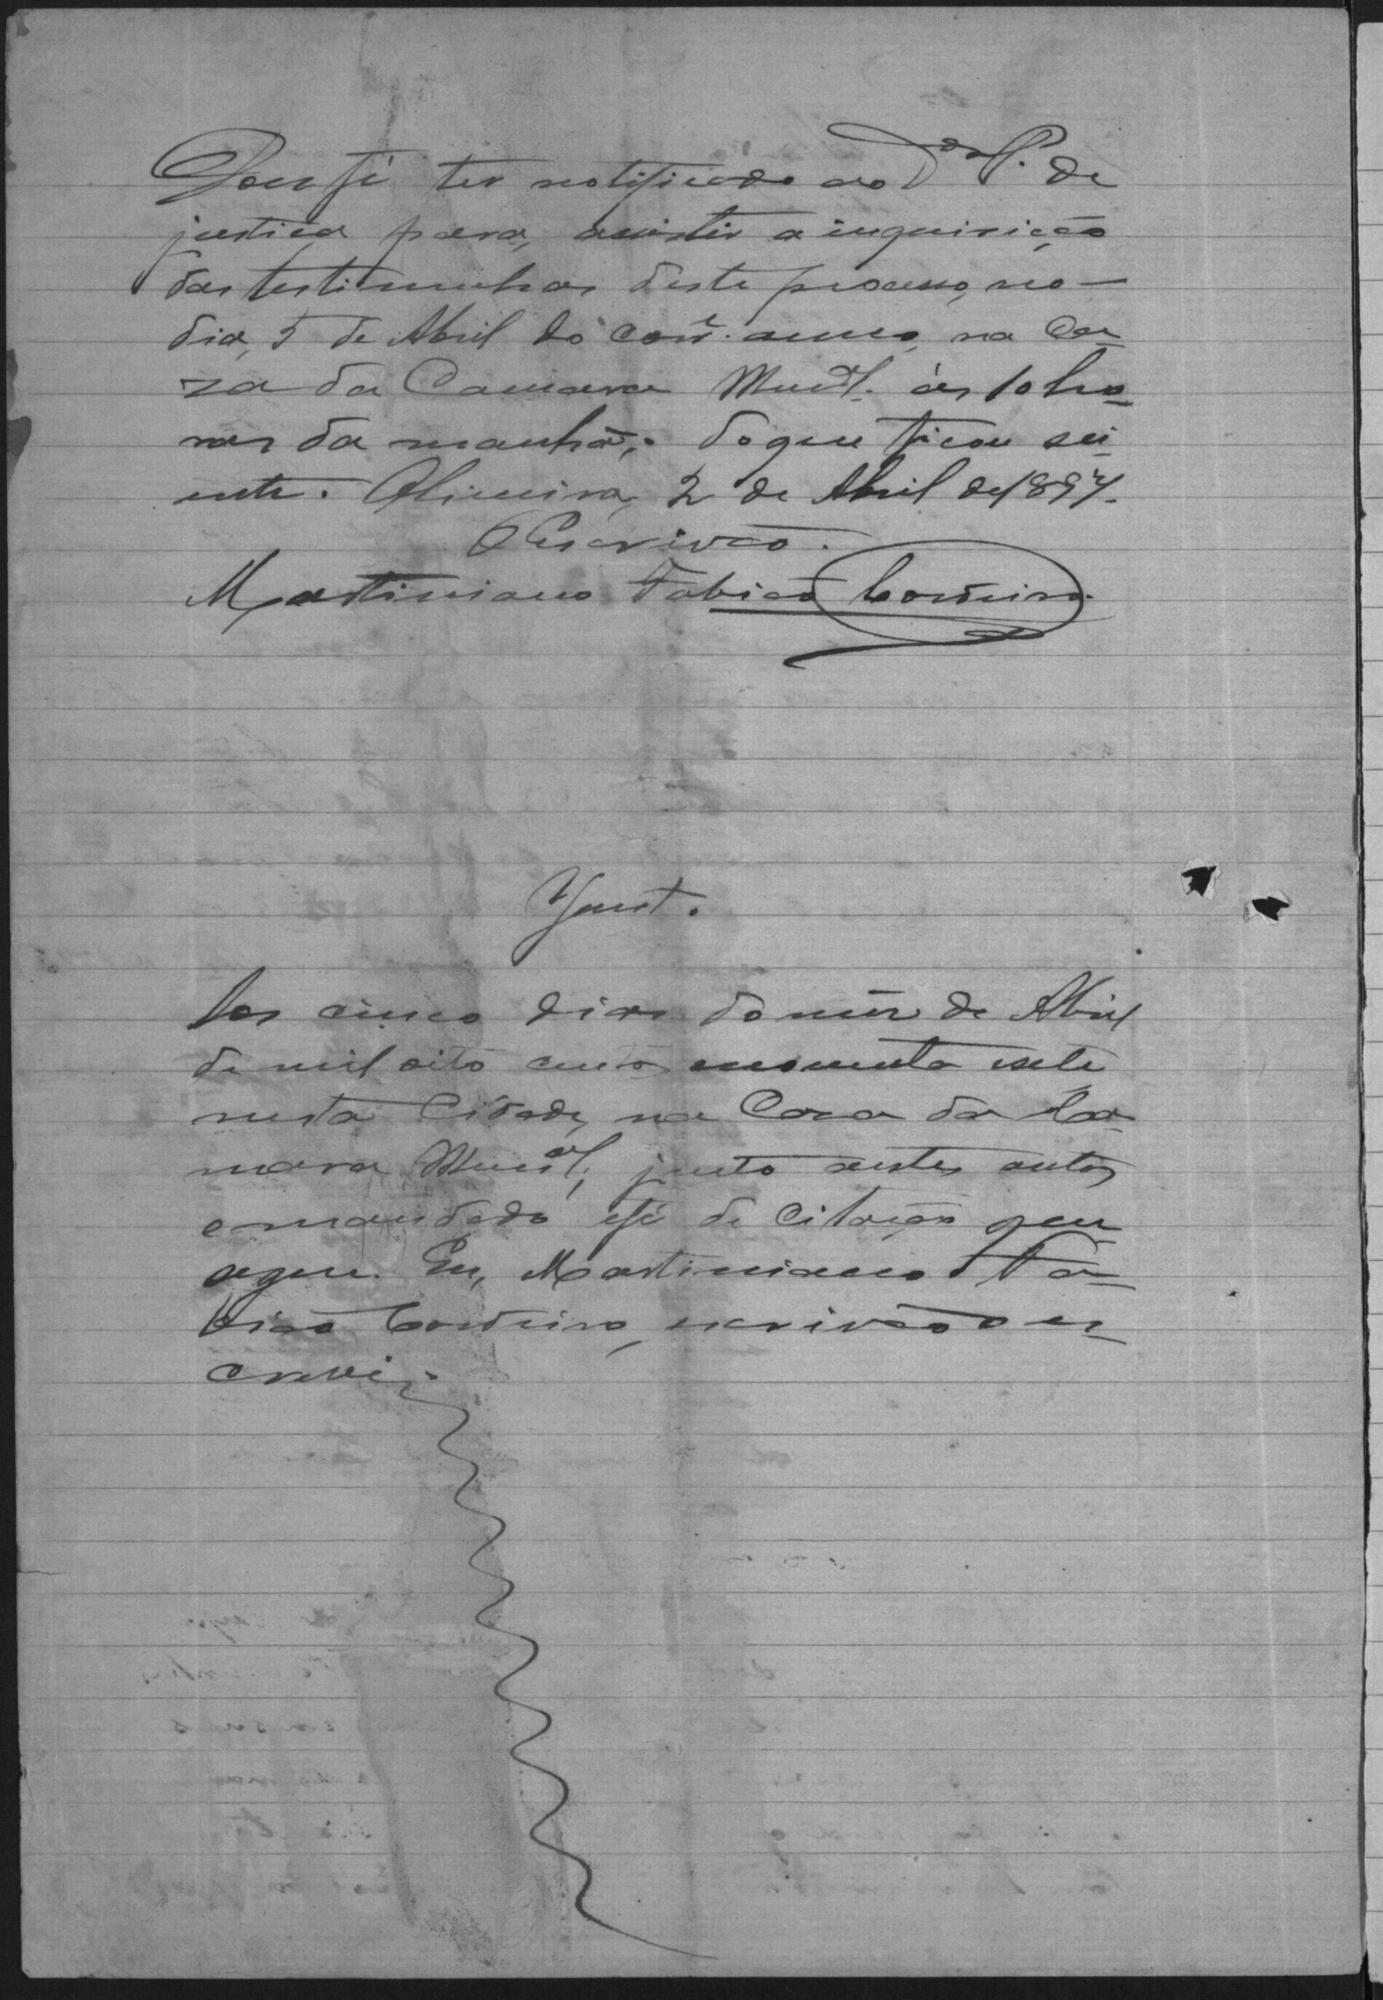 Dou fé ter notificado ao Dor P. de
justiça para, assistir a inquirição
das testimunhas deste processo, no
dia, 5 de Abril do corre. anno, na Ca-
za da Camara Munal. ás 10 ho-
ras da manhã; do que ficou sci-
ente. Limeira, 2 de Abril de 1897.
O Escrivão.
Martiniano Fabião Cordeiro.
Junt.
Aos cinco dias do mez de Abril
de mil oito centos enoventa esete
nesta Cidade, na Casa da Ca-
mara Munal, junto aestes autos
o mandado efé de Citação que
segue. Eu, Martiniano Fa-
bião Cordeiro, escrivão o es-
crevi.